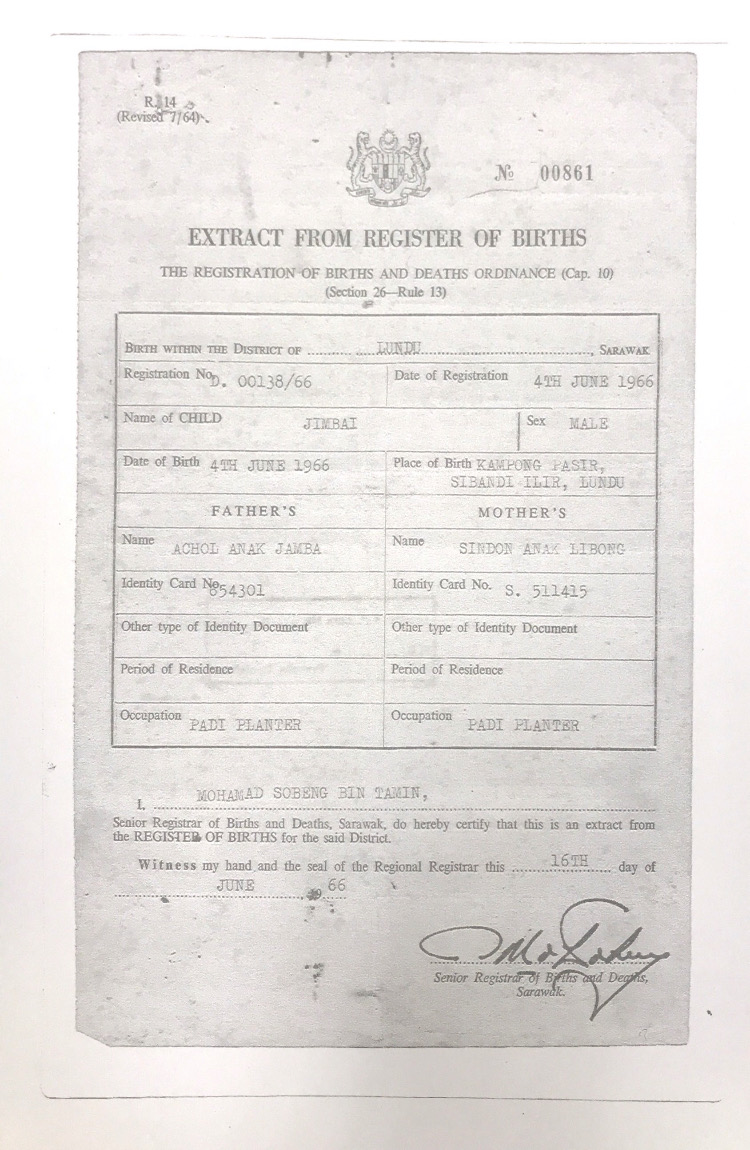 R. 14
(Revised 7/64)
№ 00861
EXTRACT FROM REGISTER OF BIRTHS
THE REGISTRATION OF BIRTHS AND DEATHS ORDINANCE (Cap. 10)
(Section 26—Rule 13)
BIRTH WITHIN THE DISTRICT OF LUNDU, SARAWAK
Registration No. D. 00138/66 Date of Registration 4TH JUNE 1966
Name of CHILD JIMBAI Sex MALE
Date of Birth 4TH JUNE 1966 Place of Birth KAMPONG PASIR,
SIBANDI ILIR, LUNDU
FATHER'S MOTHER'S
Name ACHOL ANAK JAMBA Name SINDON ANAK LIBONG
Identity Card No. 54301 Identity Card No. S. 511415
Other type of Identity Document Other type of Identity Document
Period of Residence Period of Residence
Occupation PADI PLANTER Occupation PADI PLANTER
I, MOHAMAD SOBENG BIN TAMIN,
Senior Registrar of Births and Deaths, Sarawak, do hereby certify that this is an extract from
the REGISTER OF BIRTHS for the said District.
Witness my hand and the seal of the Regional Registrar this 16TH day of
JUNE, 19 66
Senior Registrar of Births and Deaths,
Sarawak.